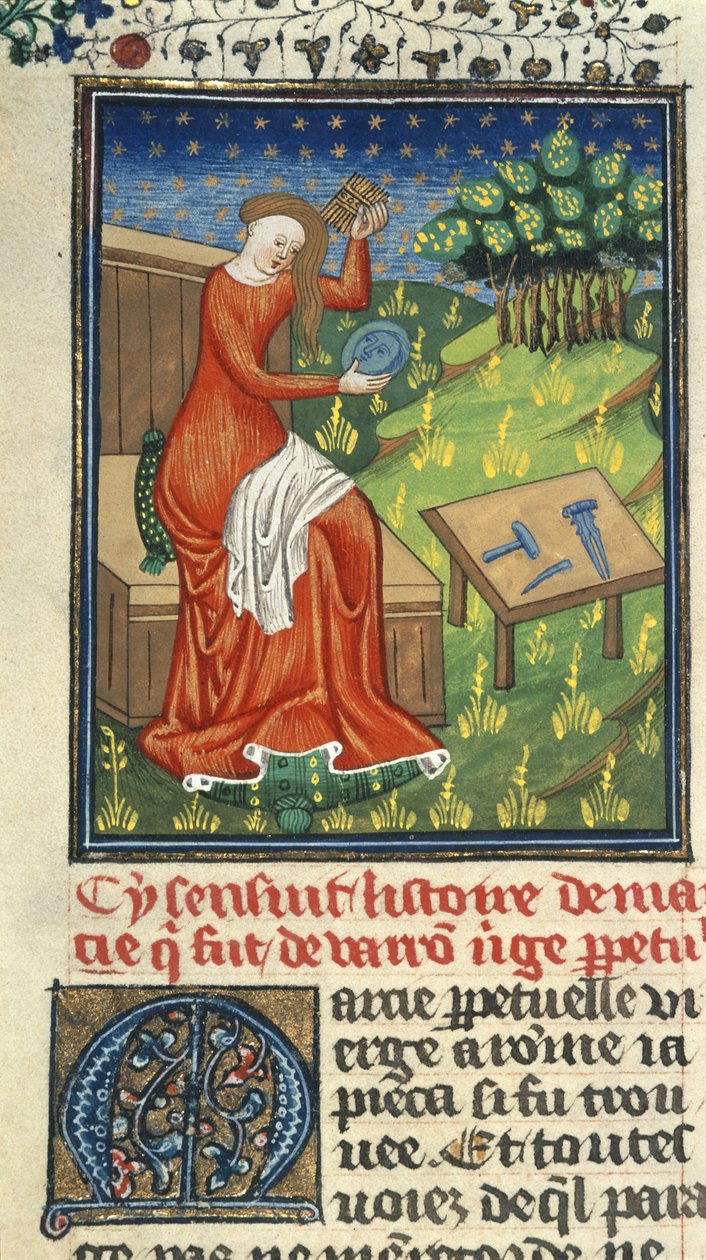 Cy sensuiut listoire de mar
cie q̃ fut de varrõ ṽge ꝑpetu
arcie ꝑpetuelle vi
erge a rõme ia
piẽca si fu trou
uee. Et toutes
uoiez de q̃l para